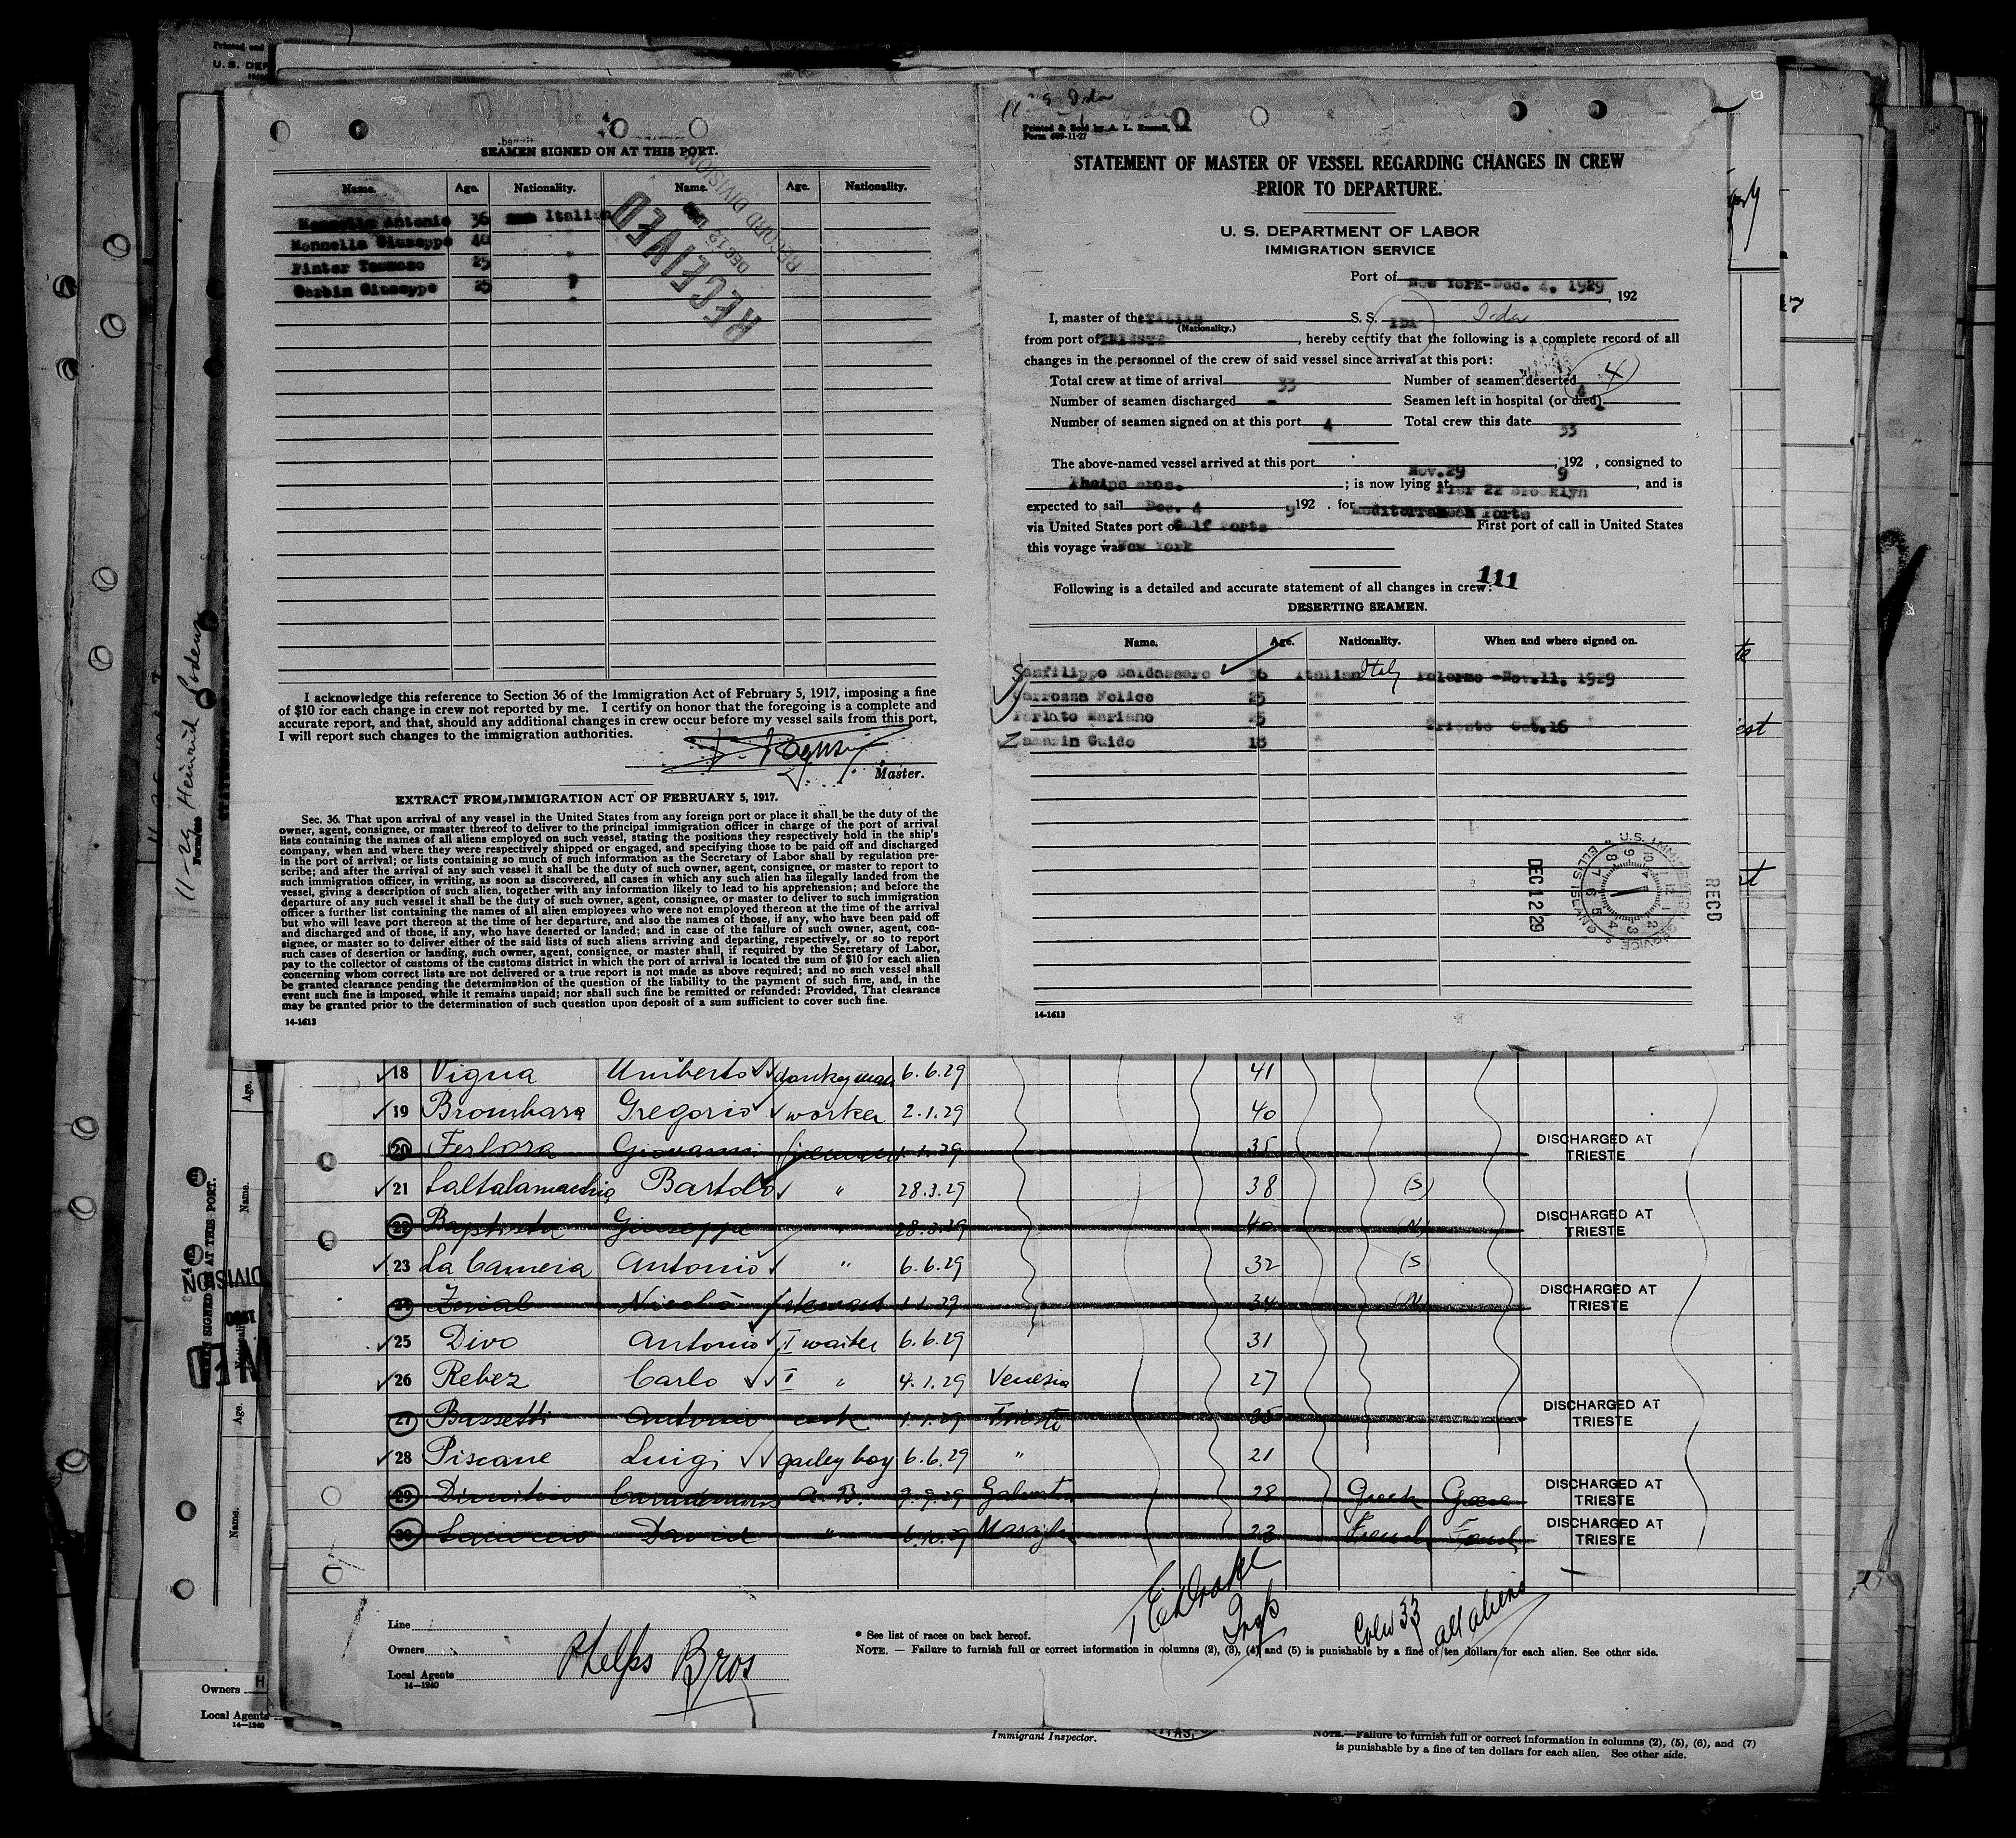 SEAMEN SIGNED ON AT THIS PORT.
Name. Age. Nationality. Name. Age. Nationality.
Antonio 36 Italian
Monnella Giuseppe 40 "
Pinter Tommaso 25 "
Giuseppe 25 "
RECEIVED
DEC 12
RECORD DIVISION
I acknowledge this reference to Section 36 of the Immigration Act of February 5, 1917, imposing a fine
of $10 for each change in crew not reported by me. I certify on honor that the foregoing is a complete and
accurate report, and that, should any additional changes in crew occur before my vessel sails from this port,
I will report such changes to the immigration authorities.
Master.
EXTRACT FROM IMMIGRATION ACT OF FEBRUARY 5, 1917.
Sec. 36. That upon arrival of any vessel in the United States from any foreign port or place it shall be the duty of the
owner, agent, consignee, or master thereof to deliver to the principal immigration officer in charge of the port of arrival
lists containing the names of all aliens employed on such vessel, stating the positions they respectively hold in the ship's
company, when and where they were respectively shipped or engaged, and specifying those to be paid off and discharged
in the port of arrival; or lists containing so much of such information as the Secretary of Labor shall by regulation pre-
scribe; and after the arrival of any such vessel it shall be the duty of such owner, agent, consignee, or master to report to
such immigration officer, in writing, as soon as discovered, all cases in which any such alien has illegally landed from the
vessel, giving a description of such alien, together with any information likely to lead to his apprehension; and before the
departure of any such vessel it shall be the duty of such owner, agent, consignee, or master to deliver to such immigration
officer a further list containing the names of all alien employees who were not employed thereon at the time of the arrival
but who will leave port thereon at the time of her departure, and also the names of those, if any, who have been paid off
and discharged and of those, if any, who have deserted or landed; and in case of the failure of such owner, agent, con-
signee, or master so to deliver either of the said lists of such aliens arriving and departing, respectively, or so to report
such cases of desertion or landing, such owner, agent, consignee, or master shall, if required by the Secretary of Labor,
pay to the collector of customs of the customs district in which the port of arrival is located the sum of $10 for each alien
concerning whom correct lists are not delivered or a true report is not made as above required; and no such vessel shall
be granted clearance pending the determination of the question of the liability to the payment of such fine, and, in the
event such fine is imposed, while it remains unpaid; nor shall such fine be remitted or refunded: Provided, That clearance
may be granted prior to the determination of such question upon deposit of a sum sufficient to cover such fine.
14-1613
Printed & Sold by A. L. Russell, Inc.
Form 689-11-27
STATEMENT OF MASTER OF VESSEL REGARDING CHANGES IN CREW
PRIOR TO DEPARTURE.
U. S. DEPARTMENT OF LABOR
IMMIGRATION SERVICE
Port of New York-Dec. 4. 1929
, 192
I, master of the Italian S. S. IDA Ida
(Nationality.)
from port of Trieste, hereby certify that the following is a complete record of all
changes in the personnel of the crew of said vessel since arrival at this port:
Total crew at time of arrival 33 Number of seamen deserted 4 4
Number of seamen discharged - Seamen left in hospital (or died) -
Number of seamen signed on at this port 4 Total crew this date 33
The above-named vessel arrived at this port Nov. 29, 192 9, consigned to
Phelps Bros.; is now lying at Pier 22 Brooklyn, and is
expected to sail Dec. 4 9 192 . for Mediterranean Ports
via United States port of Gulf Ports First port of call in United States
this voyage was New York
Following is a detailed and accurate statement of all changes in crew: 111
DESERTING SEAMEN.
Name. Age. Nationality. When and where signed on.
Sanfilippo Baldassare 36 Italian Italy Palermo -Nov. 11. 1929
Carrossa Felice 25 "
Parlato Mariano 25 " Trieste Oct. 16
Zamarin Guido 18 "
U.S. IMMIGRATION SERVICE ELLIS ISLAND
DEC 12 29
RECD
14-1613
11-29 Heinrich
✓ 18 Vigna Umberto donkeyman 6.6.29 41
✓ 19 Brombara Gregorio worker 2.1.29 40
20 Ferlora Giovanni fireman 1.1.29 35 DISCHARGED AT TRIESTE
✓ 21 Saltalamachia Bartolo " 28.3.29 38 (S)
22 Baptista Giuseppe " 28.3.29 40 (N) DISCHARGED AT TRIESTE
✓ 23 La Camera Antonio " 6.6.29 32 (S
24 Zerial Nicolò steward 1.1.29 34 (N) DISCHARGED AT TRIESTE
✓ 25 Divo Antonio I waiter 6.6.29 31
✓ 26 Rebez Carlo II " 4.1.29 Venezia 27
27 Bassetti Antonio cook 1.1.29 Trieste 35 DISCHARGED AT TRIESTE
✓ 28 Piscane Luigi galley boy 6.6.29 " 21
29 Dimitrio A. B. 9.9.29 Galveston 28 Greek Greece DISCHARGED AT TRIESTE
30 David " 6.10.29 Marsiglia 23 French DISCHARGED AT TRIESTE
Line
Owners
Local Agents Phelps Bros
14-1240
E Drake
Insp
Crew 33 all aliens
* See list of races on back hereof.
NOTE. — Failure to furnish full or correct information in columns (2), (3), (4) and (5) is punishable by a fine of ten dollars for each alien. See other side.
Owners
Local Agents
14-1240
Immigrant Inspector.
NOTE.—Failure to furnish full or correct information in columns (2), (5), (6), and (7)
is punishable by a fine of ten dollars for each alien. See other side.